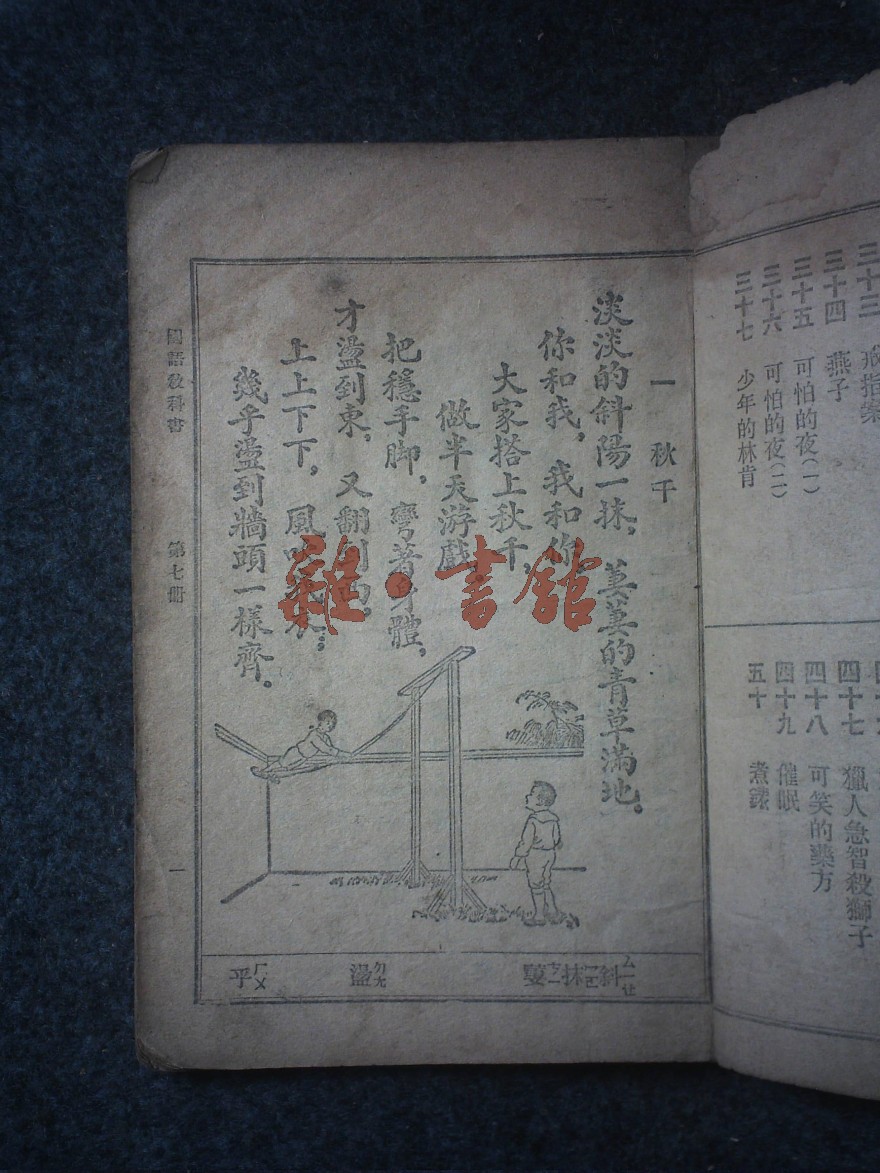 三十三 戒指案
三十四 燕子
三十五 可怕的夜(一)
三十六 可怕的夜(二)
三十七 少年的林肯
四十七 獵人急智殺獅子
四十八 可笑的藥方
四十九 催眠
五十 煮
一 秋千
淡淡的斜陽一抹，萋萋的青草滿地。
你和我，我和你，
大家搭上秋千，
做半天游戲。
把穩手脚，彎著身體，
才盪到東，又翻到西。
上上下下，風吹
幾乎盪到牆頭一樣齊。
斜ㄒㄧㄝ 抹 萋ㄑㄧ 盪ㄉㄤ 乎ㄏㄨ
國語教科書 第七册 一
雜·書館